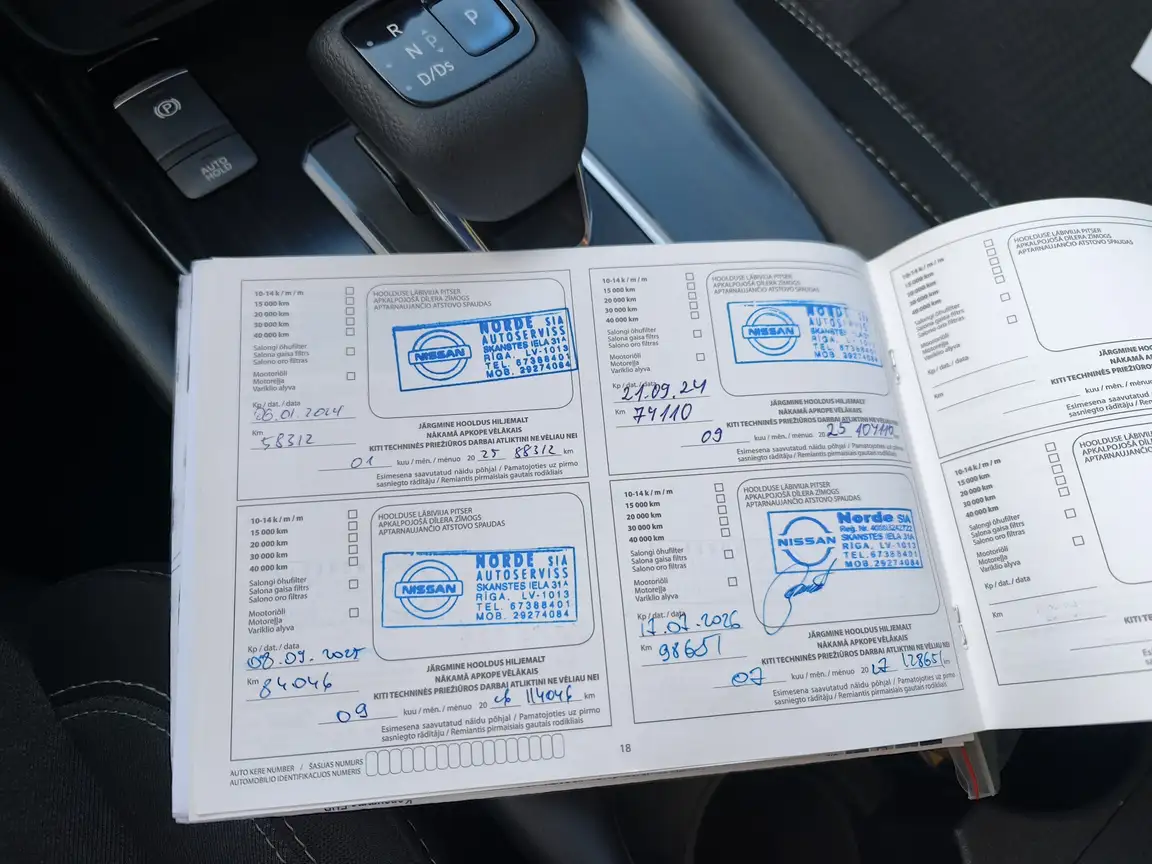 R
P
N P
D/Ds
AUTO
HOLD
10-14 k / m / m
15 000 km
20 000 km
30 000 km
40 000 km
Salongi õhufilter
Salona gaisa filtrs
Salono oro filtras
Mootoriõli
Motoreļļa
Variklio alyva
Kp / dat. / data
26.01.2024
Km
58312
HOOLDUSE LÄBIVIIJA PITSER
APKALPOJOŠĀ DĪLERA ZĪMOGS
APTARNAUJANČIO ATSTOVO SPAUDAS
NISSAN
NORDE SIA
AUTOSERVISS
SKANSTES IELA 31A
RĪGA, LV-1013
TEL. 67388401
MOB. 29274084
JÄRGMINE HOOLDUS HILJEMALT
NĀKAMĀ APKOPE VĒLĀKAIS
KITI TECHNINĖS PRIEŽIŪROS DARBAI ATLIKTINI NE VĖLIAU NEI
01 kuu / mēn. / mėnuo 20 25 88312 km
Esimesena saavutatud näidu põhjal / Pamatojoties uz pirmo
sasniegto rādītāju / Remiantis pirmaisiais gautais rodikliais
10-14 k / m / m
15 000 km
20 000 km
30 000 km
40 000 km
Salongi õhufilter
Salona gaisa filtrs
Salono oro filtras
Mootoriõli
Motoreļļa
Variklio alyva
Kp / dat. / data
21.09.24
Km
74110
HOOLDUSE LÄBIVIIJA PITSER
APKALPOJOŠĀ DĪLERA ZĪMOGS
APTARNAUJANČIO ATSTOVO SPAUDAS
NISSAN
NORDE
AUTOSERVISS
SKANSTES IELA 31A
RĪGA, LV-1013
TEL. 67388401
MOB. 29274084
JÄRGMINE HOOLDUS HILJEMALT
NĀKAMĀ APKOPE VĒLĀKAIS
KITI TECHNINĖS PRIEŽIŪROS DARBAI ATLIKTINI NE VĖLIAU NEI
09 kuu / mēn. / mėnuo 20 25 104110 km
Esimesena saavutatud näidu põhjal / Pamatojoties uz pirmo
sasniegto rādītāju / Remiantis pirmaisiais gautais rodikliais
10-14 k / m / m
15 000 km
20 000 km
30 000 km
40 000 km
Salongi õhufilter
Salona gaisa filtrs
Salono oro filtras
Mootoriõli
Motoreļļa
Variklio alyva
Kp / dat. / data
08.09.2025
Km
84046
HOOLDUSE LÄBIVIIJA PITSER
APKALPOJOŠĀ DĪLERA ZĪMOGS
APTARNAUJANČIO ATSTOVO SPAUDAS
NISSAN
NORDE SIA
AUTOSERVISS
SKANSTES IELA 31A
RĪGA, LV-1013
TEL. 67388401
MOB. 29274084
JÄRGMINE HOOLDUS HILJEMALT
NĀKAMĀ APKOPE VĒLĀKAIS
KITI TECHNINĖS PRIEŽIŪROS DARBAI ATLIKTINI NE VĖLIAU NEI
09 kuu / mēn. / mėnuo 20 26 114046 km
Esimesena saavutatud näidu põhjal / Pamatojoties uz pirmo
sasniegto rādītāju / Remiantis pirmaisiais gautais rodikliais
10-14 k / m / m
15 000 km
20 000 km
30 000 km
40 000 km
Salongi õhufilter
Salona gaisa filtrs
Salono oro filtras
Mootoriõli
Motoreļļa
Variklio alyva
Kp / dat. / data
17.07.2026
Km
98651
HOOLDUSE LÄBIVIIJA PITSER
APKALPOJOŠĀ DĪLERA ZĪMOGS
APTARNAUJANČIO ATSTOVO SPAUDAS
NISSAN
Norde SIA
SKANSTES IELA 31A
RĪGA, LV-1013
TEL. 67388401
MOB. 29274084
JÄRGMINE HOOLDUS HILJEMALT
NĀKAMĀ APKOPE VĒLĀKAIS
KITI TECHNINĖS PRIEŽIŪROS DARBAI ATLIKTINI NE VĖLIAU NEI
07 kuu / mēn. / mėnuo 20 27 128651 km
Esimesena saavutatud näidu põhjal / Pamatojoties uz pirmo
sasniegto rādītāju / Remiantis pirmaisiais gautais rodikliais
AUTO KERE NUMBER / ŠASIJAS NUMURS
AUTOMOBILIO IDENTIFIKACIJOS NUMERIS
18
10-14 k / m / m
15 000 km
20 000 km
30 000 km
40 000 km
Salongi õhufilter
Salona gaisa filtrs
Salono oro filtras
Mootoriõli
Motoreļļa
Variklio alyva
Kp / dat. / data
Km
HOOLDUSE LÄBIVIIJA PITSER
APKALPOJOŠĀ DĪLERA ZĪMOGS
APTARNAUJANČIO ATSTOVO SPAUDAS
JÄRGMINE HOO
NĀKAMĀ
KITI TECHNINĖS PRIEŽIŪROS
kuu / mēn. / mėnuo
Esimesena saavutatud
sasniegto rādītāju / Re
10-14 k / m / m
15 000 km
20 000 km
30 000 km
40 000 km
Salongi õhufilter
Salona gaisa filtrs
Salono oro filtras
Mootoriõli
Motoreļļa
Variklio alyva
Kp / dat. / data
Km
HOOLDUSE LÄBIVI
APKALPOJOŠĀ D
APTARNAUJANČ
KITI TE